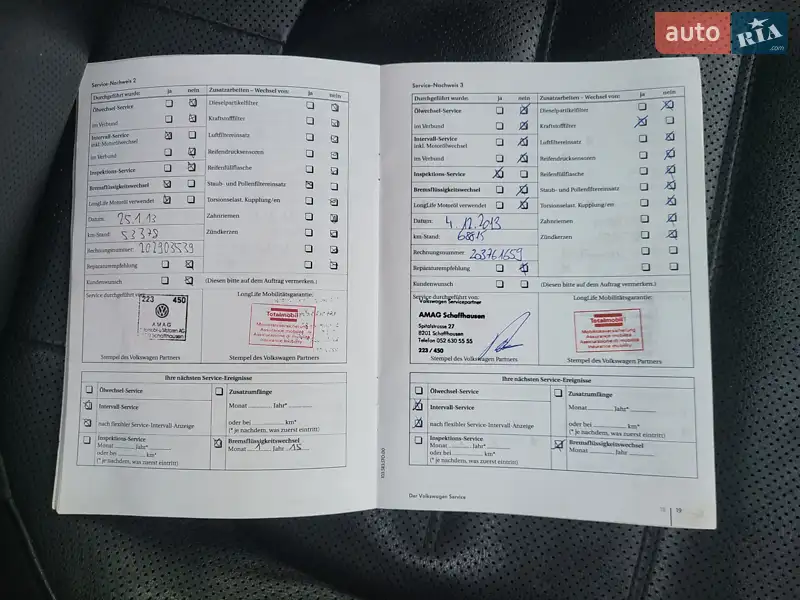 auto RIA.com
Service-Nachweis 2
Durchgeführt wurde: ja nein Zusatzarbeiten – Wechsel von: ja nein
Ölwechsel-Service Dieselpartikelfilter
im Verbund Kraftstofffilter
Intervall-Service
inkl. Motorölwechsel Luftfiltereinsatz
im Verbund Reifendrucksensoren
Inspektions-Service Reifenfüllflasche
Bremsflüssigkeitswechsel Staub- und Pollenfiltereinsatz
LongLife Motoröl verwendet Torsionselast. Kupplung/en
Datum: 25.1.13 Zahnriemen
km-Stand: 53378 Zündkerzen
Rechnungsnummer: 202903539
Reparaturempfehlung
Kundenwunsch (Diesen bitte auf dem Auftrag vermerken.)
Service durchgeführt von: LongLife Mobilitätsgarantie:
223 450
AMAG
Schaffhausen
Totalmobil!
Mobilitätsversicherung
Assurance mobilité
Assicurazione di mobilità
Insurance mobility
Stempel des Volkswagen Partners Stempel des Volkswagen Partners
Ihre nächsten Service-Ereignisse
Ölwechsel-Service Zusatzumfänge
Intervall-Service Monat Jahr*
nach flexibler Service-Intervall-Anzeige oder bei km*
(* je nachdem, was zuerst eintritt)
Inspektions-Service Bremsflüssigkeitswechsel
Monat Jahr* Monat 1 Jahr 15
oder bei km*
(* je nachdem, was zuerst eintritt)
Service-Nachweis 3
Durchgeführt wurde: ja nein Zusatzarbeiten – Wechsel von: ja nein
Ölwechsel-Service Dieselpartikelfilter
im Verbund Kraftstofffilter
Intervall-Service
inkl. Motorölwechsel Luftfiltereinsatz
im Verbund Reifendrucksensoren
Inspektions-Service Reifenfüllflasche
Bremsflüssigkeitswechsel Staub- und Pollenfiltereinsatz
LongLife Motoröl verwendet Torsionselast. Kupplung/en
Datum: 4.12.2013 Zahnriemen
km-Stand: 68815 Zündkerzen
Rechnungsnummer: 203761659
Reparaturempfehlung
Kundenwunsch (Diesen bitte auf dem Auftrag vermerken.)
Service durchgeführt von: LongLife Mobilitätsgarantie:
Volkswagen Servicepartner
AMAG Schaffhausen
Spitalstrasse 27
8201 Schaffhausen
Telefon 052 630 55 55
223/450
Totalmobil!
Mobilitätsversicherung
Assurance mobilité
Assicurazione di mobilità
Insurance mobility
Stempel des Volkswagen Partners Stempel des Volkswagen Partners
Ihre nächsten Service-Ereignisse
Ölwechsel-Service Zusatzumfänge
Intervall-Service Monat Jahr*
nach flexibler Service-Intervall-Anzeige oder bei km*
(* je nachdem, was zuerst eintritt)
Inspektions-Service Bremsflüssigkeitswechsel
Monat Jahr* Monat Jahr
oder bei km*
(* je nachdem, was zuerst eintritt)
Der Volkswagen Service
18 19